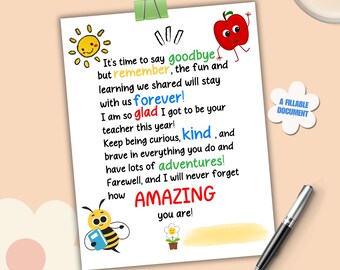 It's time to say goodbye
but remember, the fun and
learning we shared will stay
with us forever!
I am so glad I got to be your
teacher this year!
Keep being curious, kind , and
brave in everything you do and
have lots of adventures!
Farewell, and I will never forget
how AMAZING
you are!
A FILLABLE
DOCUMENT